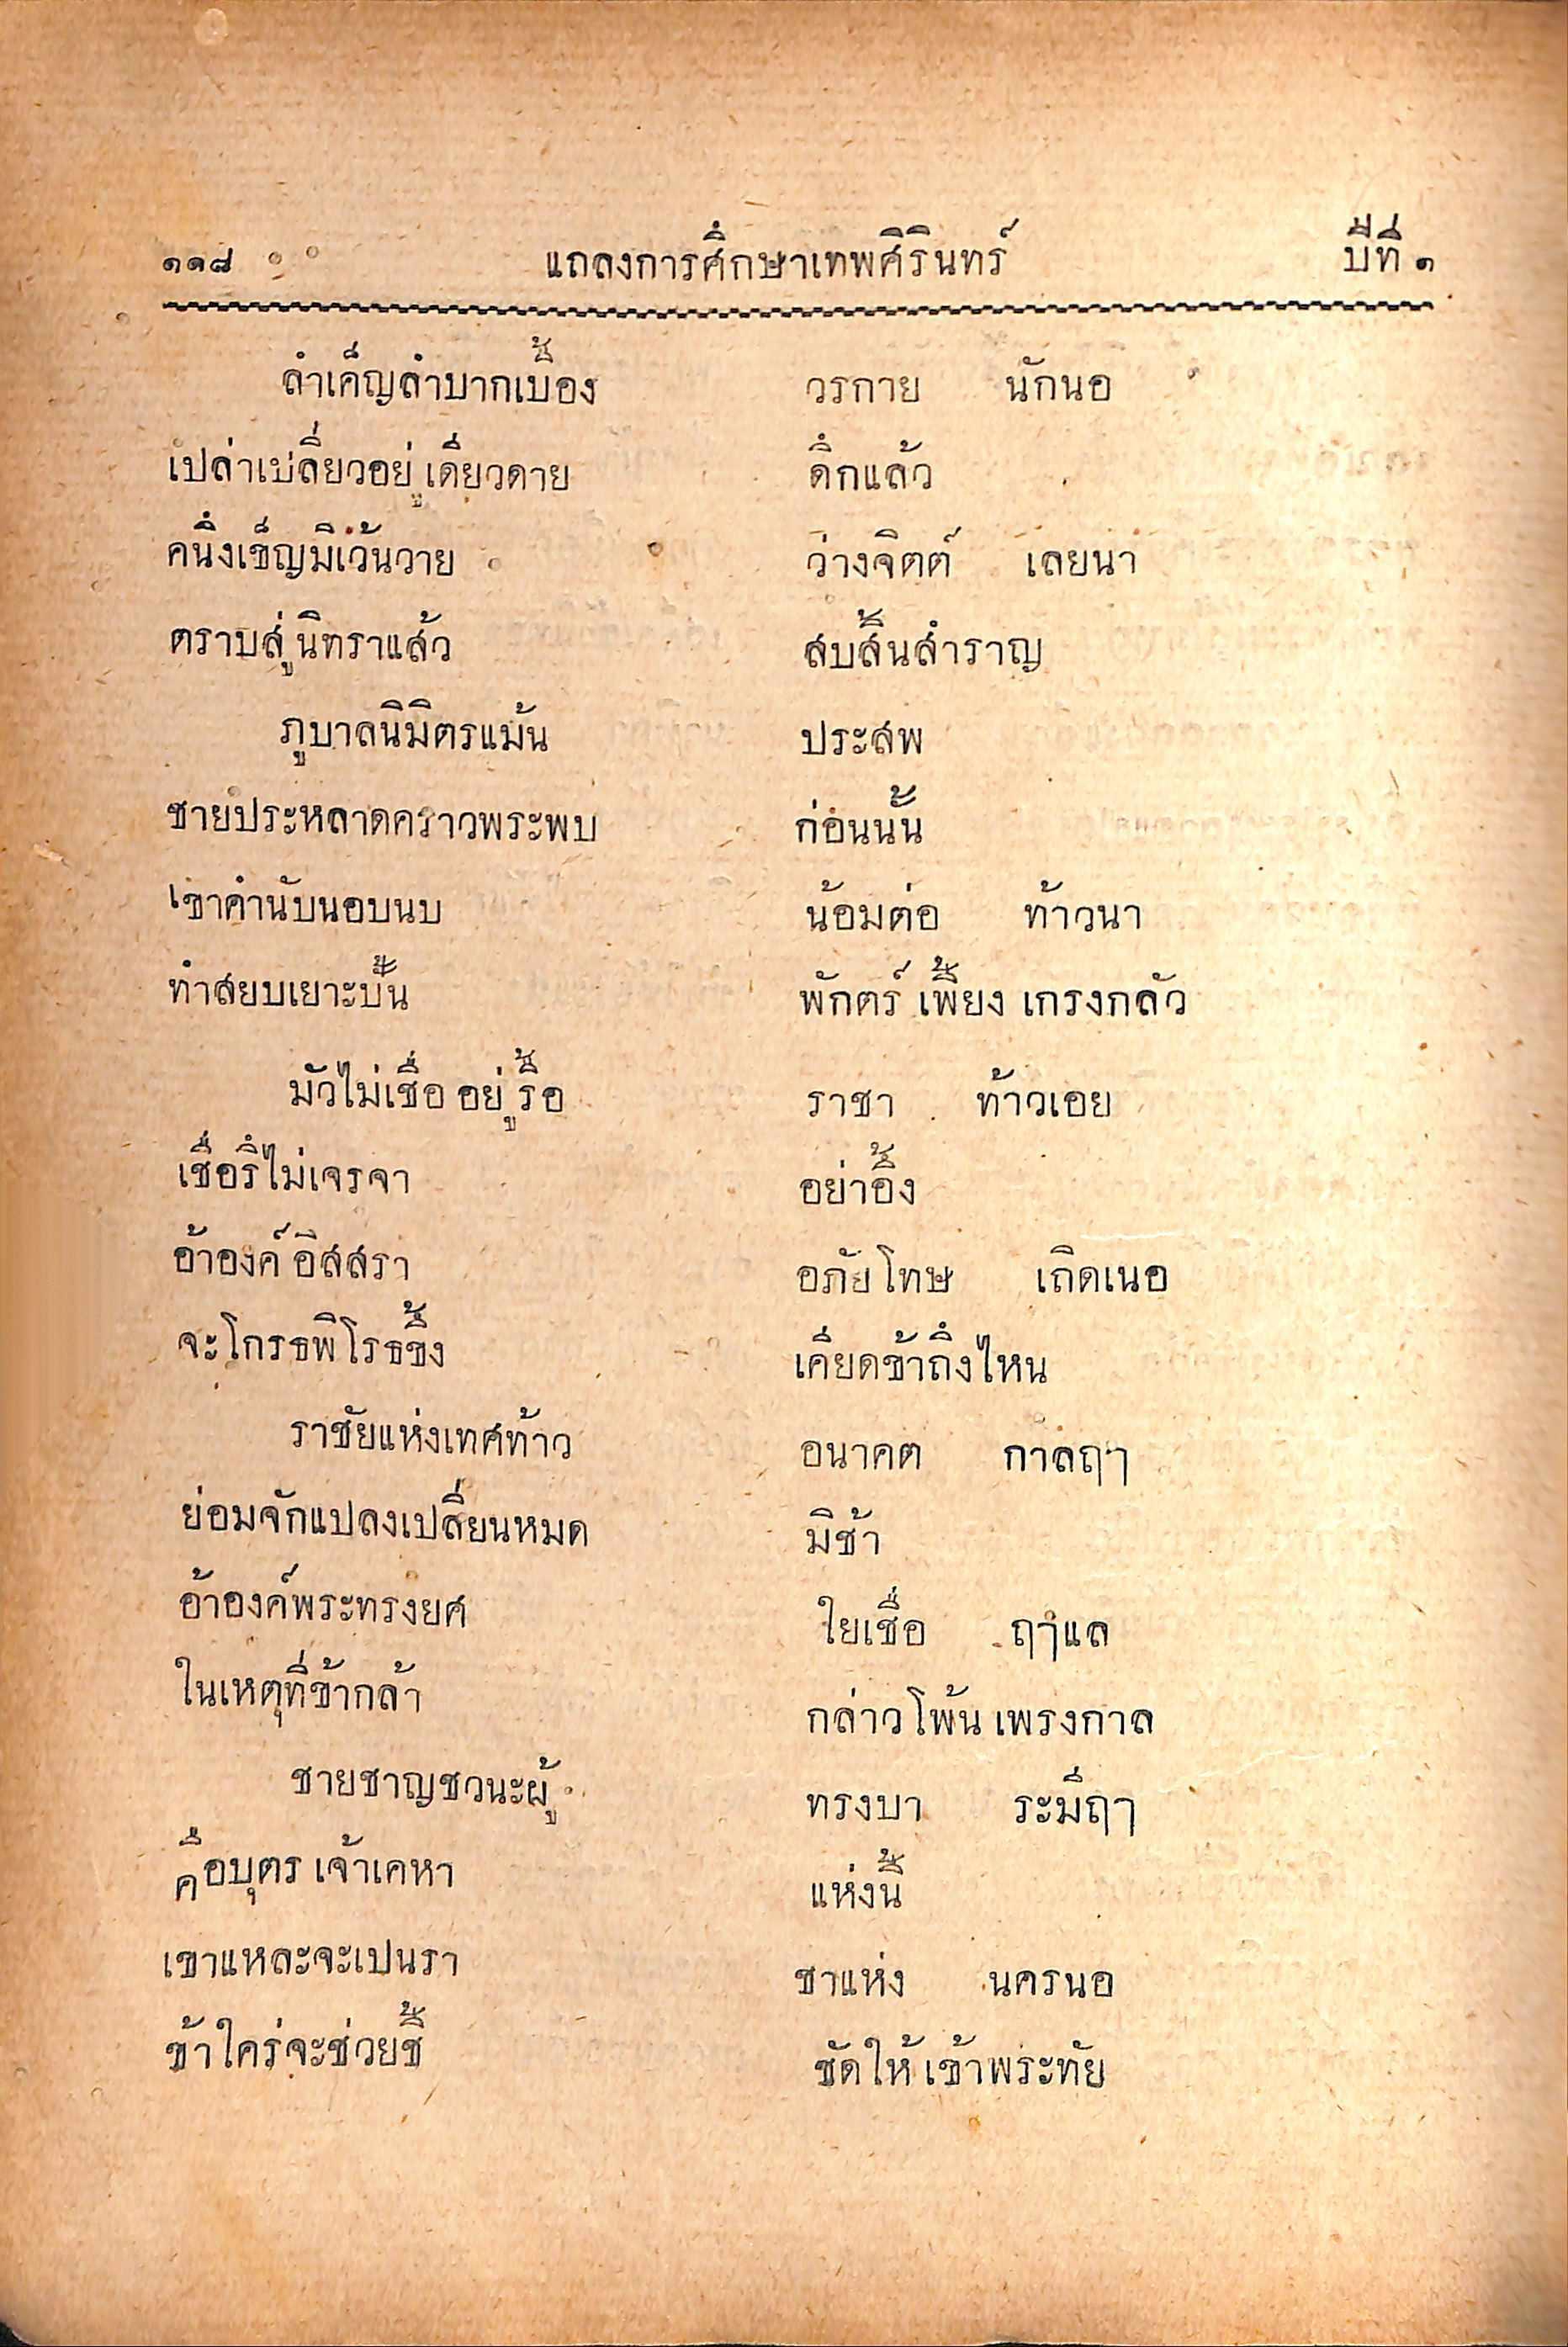 ๑๑๘ แถลงการศึกษาเทพศิรินทร์ ปีที่ ๑
ลำเค็ญลำบากเบื้อง วรกาย นักนอ
เปล่าเปลี่ยวอยู่เดียวดาย ดึกแล้ว
คนึงเข็ญมิเว้นวาย ว่างจิตต์ เลยนา
ตราบสู่นิทราแล้ว สบสิ้นสำราญ
ภูบาลนิมิตรแม้น ประสพ
ชายประหลาดคราวพระพบ ก่อนนั้น
เขาคำนับนอบนบ น้อมต่อ ท้าวนา
ทำสยบเยาะปั้น พักตร์ เพี้ยง เกรงกลัว
มัวไม่เชื่อ อยู่รื้อ ราชา ท้าวเอย
เชื่อรึไม่เจรจา อย่าอึ้ง
อ้าองค์ อิสสรา อภัยโทษ เถิดเนอ
จะโกรธพิโรธขึ้ง เคียดข้าถึงไหน
ราชัยแห่งเทศท้าว อนาคต กาลฤๅ
ย่อมจักแปลงเปลี่ยนหมด มิช้า
อ้าองค์พระทรงยศ ใยเชื่อ ฤๅแล
ในเหตุที่ข้ากล้า กล่าวโพ้น เพรงกาล
ชายชาญชวนะผู้ ทรงบา ระมีฤๅ
คือบุตร เจ้าเคหา แห่งนี้
เขาแหละจะเปนรา ชาแห่ง นครนอ
ข้าใคร่จะช่วยชี้ ชัดให้ เข้าพระทัย